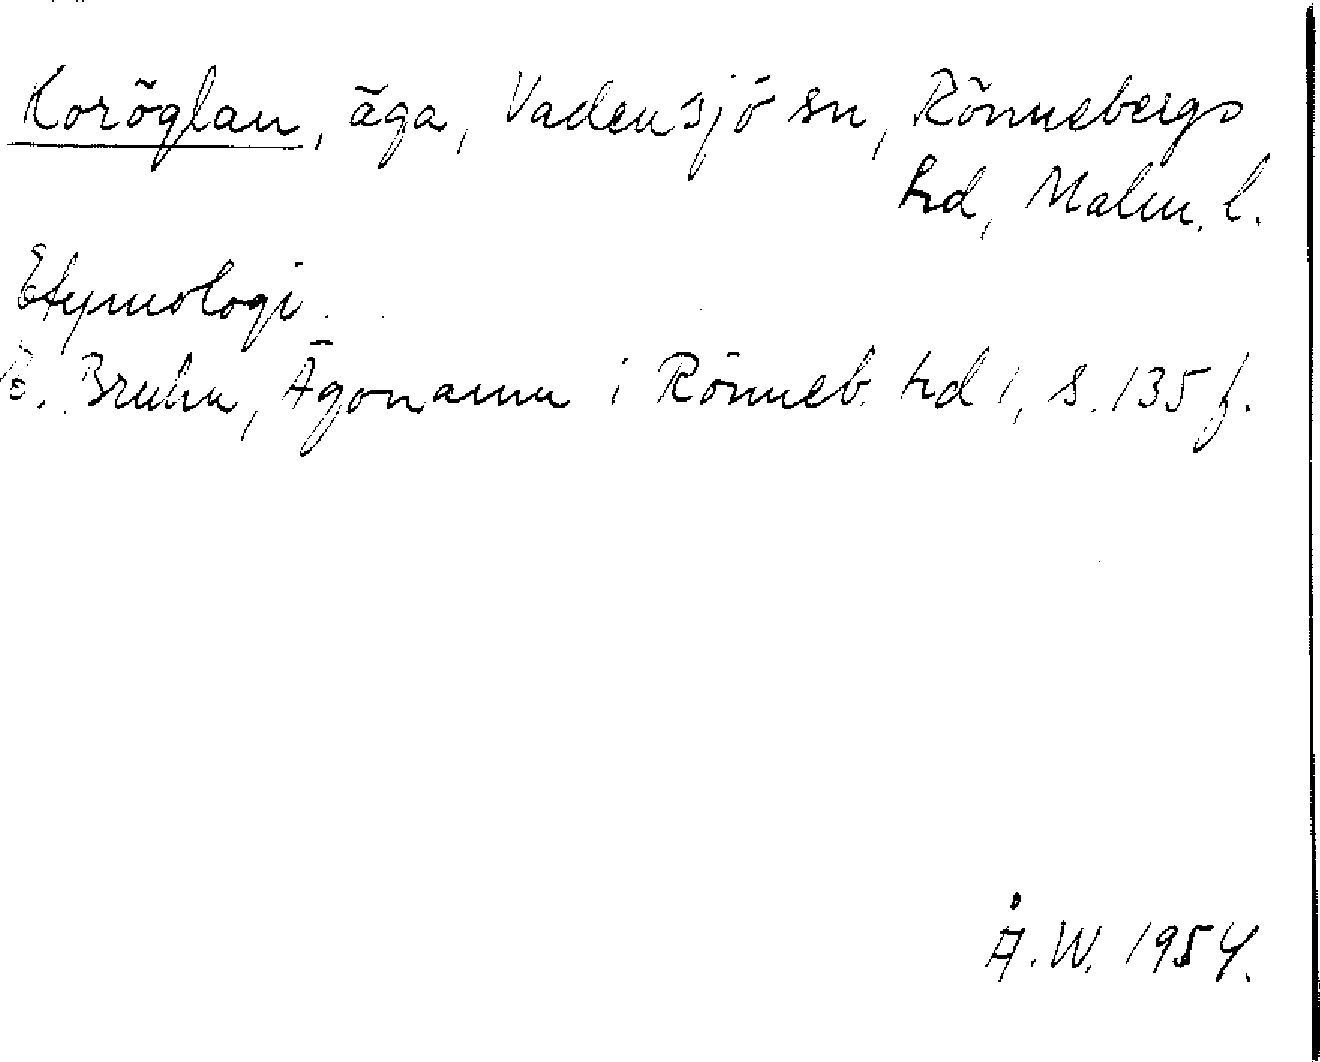 Koröglan, äga, Vadensjö sn, Rönnebergs
hd, Malm. l.
Etymologi.
B. Bruhn, Ägonamn i Rönneb. hd 1, s. 135 f.
Å.W. 1954.